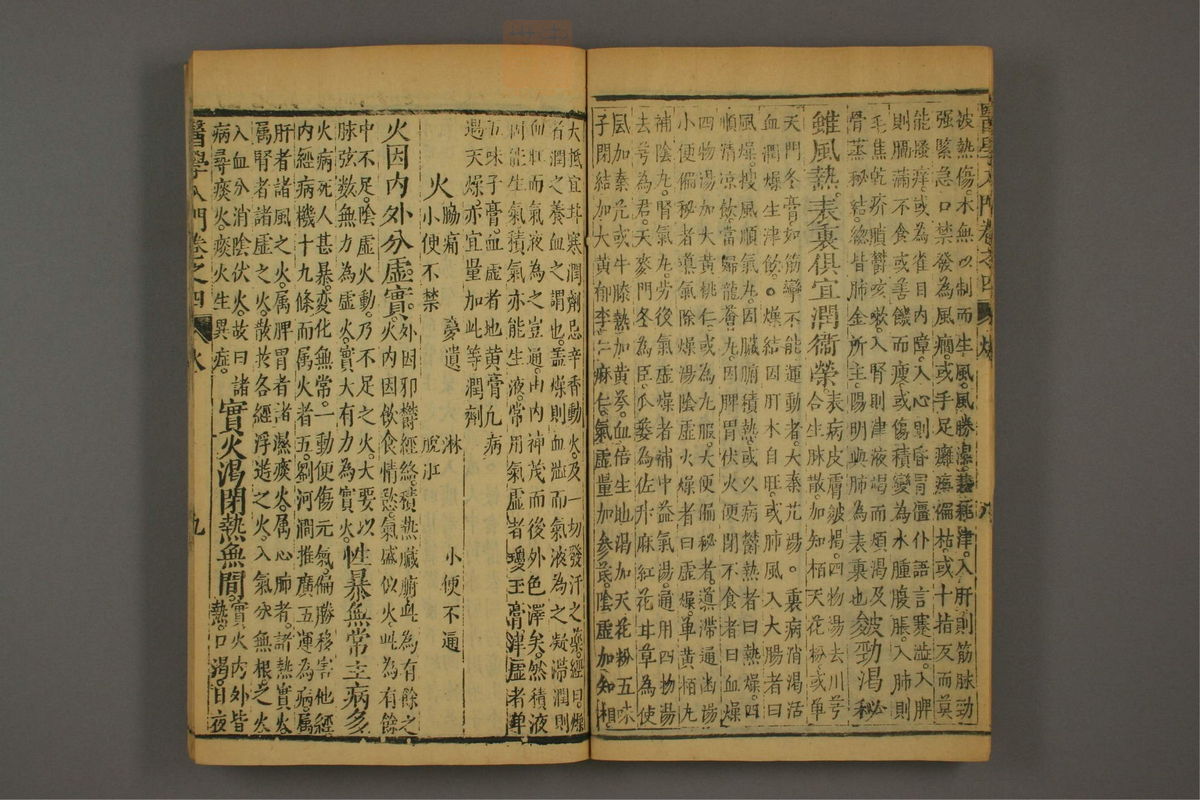 醫學入門卷之四 燥 八
被熱傷木無以制而生風風勝濕熱耗津入肝則筋脉勁
强緊急口禁發為風癎或手足癱瘓偏枯或十指反而莫
能搔痒或為雀目內障入心則昏冒僵仆語言蹇澁入脾
則膈滿不食或善饑而瘦或傷積變為水腫腹脹入肺則
毛焦乾疥膹鬱咳嗽入腎則津液竭而煩渴及
骨蒸秘結總皆肺金所主陽明與肺為表裏也皴勁渴秘
雖風熱表裏俱宜潤衞榮表病皮膚皴揭四物湯去川芎
合生脉散加知栢天花粉或單
天門冬膏如筋攣不能運動者大秦艽湯裏病消渴活
血潤燥生津飲燥結因肝木自旺或肺風入大腸者曰
風燥搜風順氣丸因臟腑積熱或久病鬱熱者曰熱燥四
順清凉飲當歸龍薈丸因脾胃伏火便閉不食者曰血燥
四物湯加大黃桃仁或為丸服大便偏秘者導滯通幽湯
小便偏秘者導氣除燥湯陰虛火燥者曰虛燥單黃栢丸
補陰丸腎氣丸勞後氣虛燥者補中益氣湯通用四物湯
去芎為君天麥門冬為臣瓜蔞為佐升麻紅花甘草為使
風加秦艽或牛膝熱加黃芩血倍生地渴加天花粉五味
子閉結加大黃郁李仁麻仁氣虛量加參芪陰虛加知栢
大抵宜甘寒潤劑忌辛香動火及一切發汗之藥經曰燥
者潤之養血之謂也盖燥則血澁而氣液為之凝滯潤則
血旺而氣液為之豈通由內神茂而後外色澤矣然積液
固能生氣積氣亦能生液常用氣虛者瓊玉膏津虛者單
五味子膏血虛者地黃膏凡病
遇天燥亦宜量加此等潤劑
火 脇痛 夢遺 淋 小便不通
小便不禁 脫肛
火因內外分虛實外因邪鬱經絡積熱臟腑此為有餘之
火內因飲食情慾氣盛似火此為有餘
中不足陰虛火動乃不足之火大要以
脉弦数無力為虛火實大有力為實火性暴無常主病多
火病死人甚暴變化無常一動便傷元氣偏勝移害他經
內經病機十九條而属火者五劉河澗推廣五運為病属
肝者諸風之火属脾胃者諸濕痰火属心肺者諸熱實火
属腎者諸虛之火散於各經浮遊之火入氣分無根之火
入血分消陰伏火故曰諸
病尋痰火痰火生異症實火渴閉熱無間實火內外皆
熱口渴日夜
醫學入門卷之四 火 九